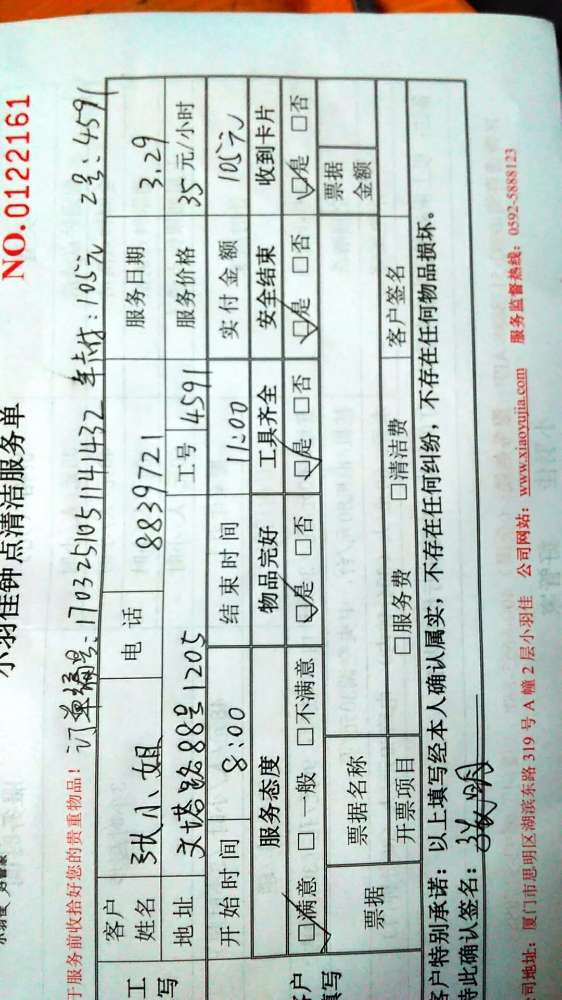 小羽佳钟点清洁服务单 NO.0122161
于服务前收拾好您的贵重物品! 订单编号: 1703251051141432 105元 4591
客户姓名 张小姐 电话 8839721 服务日期 3.29
地址 文塔路88号1205 工号 4591 服务价格 35元/小时
开始时间 8:00 结束时间 11:00 实付金额 105元
服务态度 物品完好 工具齐全 安全结束 收到卡片
☑满意 □一般 □不满意 ☑是 □否 ☑是 □否 ☑是 □否 ☑是 □否
票据 票据名称 票据金额
开票项目 □服务费 □清洁费 客户签名
客户特别承诺: 以上填写经本人确认属实, 不存在任何纠纷, 不存在任何物品损坏。
特此确认签名:
司地址: 厦门市思明区湖滨东路 319 号 A 幢 2 层小羽佳 公司网站: www.xiaoyujia.com 服务监督热线: 0592-5888123